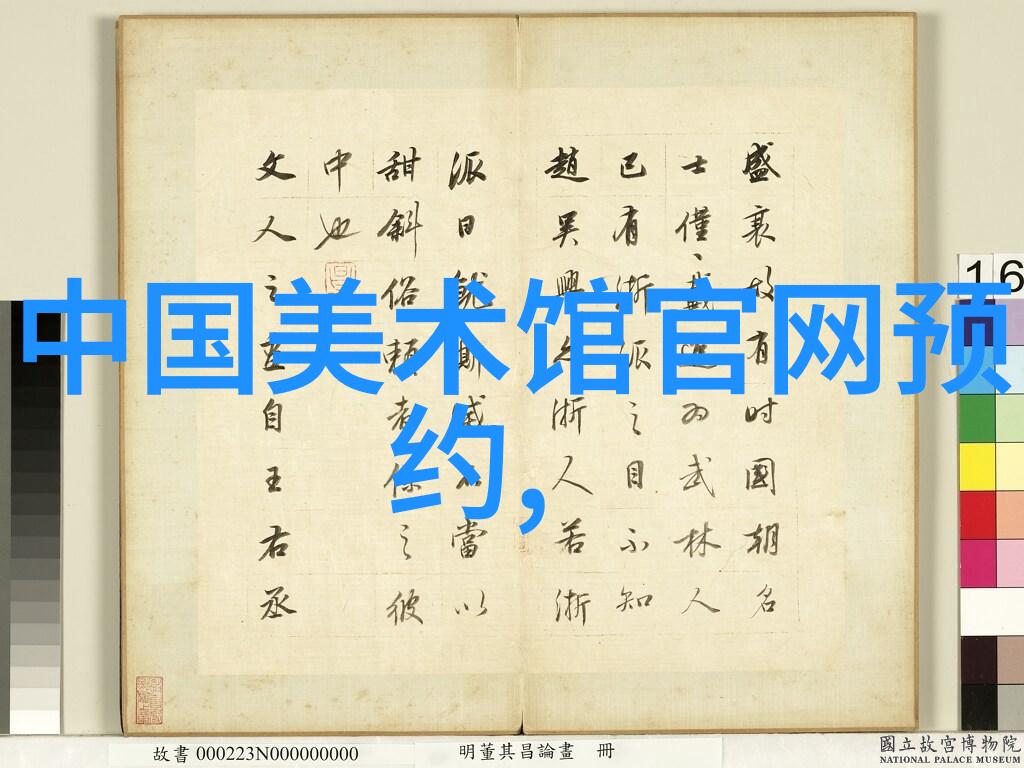 中国美术馆官网预
约,
盛衰故有时國朝名
士僅戴進为武林人
已有浙派之目不知
趙吴興亦浙人若浙
派日就澌滅不當以
甜斜俗頼者係之彼
中也
文人之畫自王右丞
16
故書 000223N000000000
明董其昌論畫 冊
國立故宮博物院
NATIONAL PALACE MUSEUM